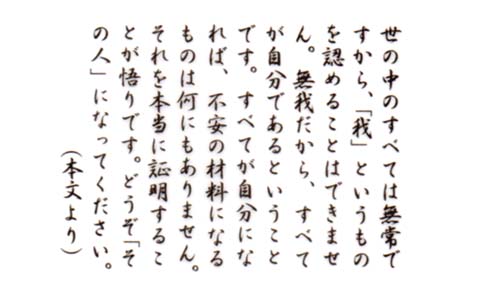 世の中のすべては無常で
すから、「我」というもの
を認めることはできませ
ん。無我だから、すべて
が自分であるということ
です。すべてが自分にな
れば、不安の材料になる
ものは何にもありません。
それを本当に証明するこ
とが悟りです。どうぞ「そ
の人」になってください。
（本文より）